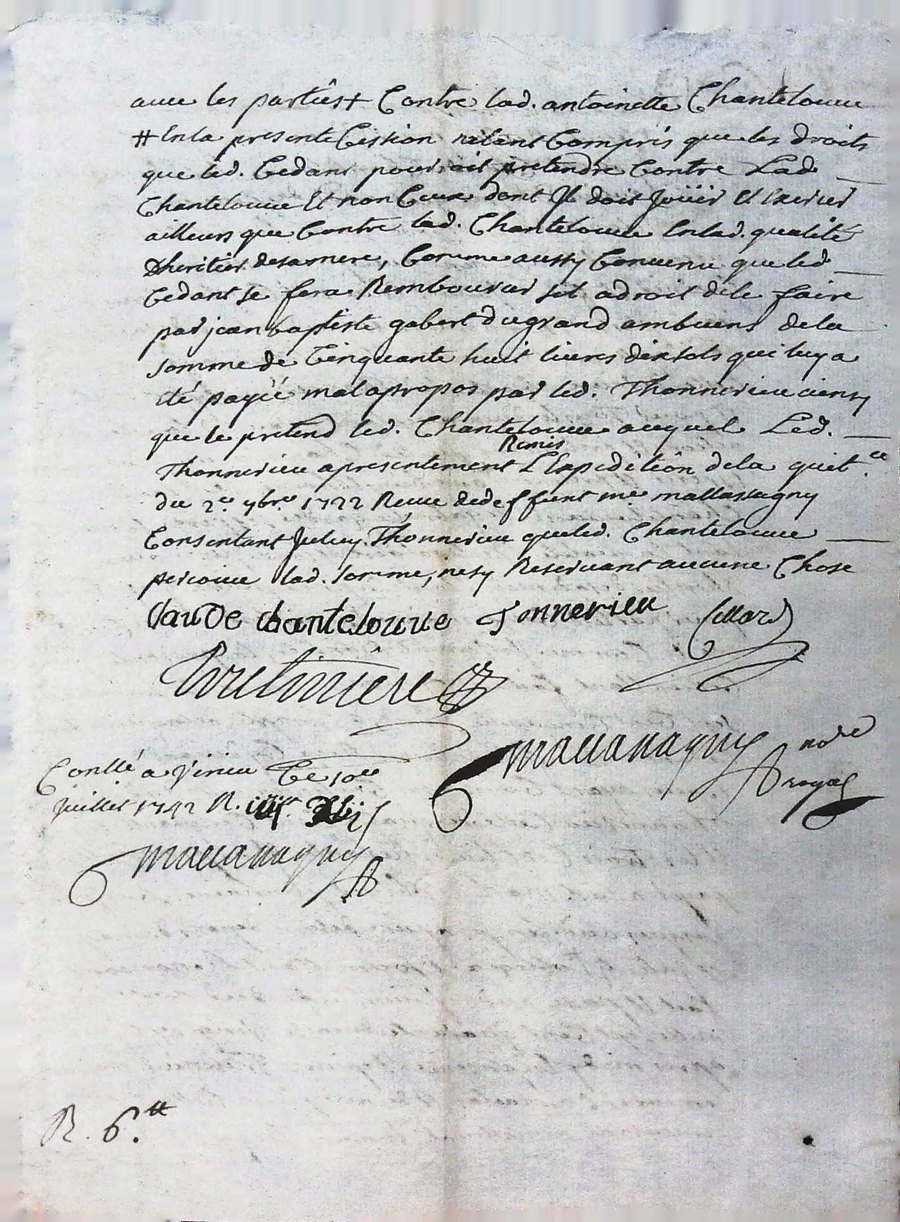 avec les parties + Contre lad. antoinette Chantelouue
# En la presente Cession netant Compris que les droits
que led. Cedant pourroit pretendre Contre Lad
Chantelouue Et non Ceux dont Jl doit Joüir Et Exercer
ailleurs que Contre lad. Chantelouue En lad. qualité
Dheritier desamere, Comme aussy Convenu que led
Cedant se fera Rembourcer sil a droit dele faire
par jean baptiste gabert dugrand ambuens dela
somme de Cinquante huit livres dix sols qui luy a
eté payéé mal apropos par led. Thonnerieu ainsy
que le pretend led. Chantelouue auquel Led.
Thonnerieu apresentement Remis LExpedition dela quit.ce
du 2.e 7bre 1722 Receue dedeffunt me mallassagny
Consentant Jceluy Thonnerieu queled. Chantelouue
percoiue lad. somme, nesy Reservant aucune Chose
Claude Chantelouuve Tonnerieu
mallassagny no.re
royal
Conllé a Virieu Ce 10e
Juillet 1742 R.
mallassagny
R. 6.tt